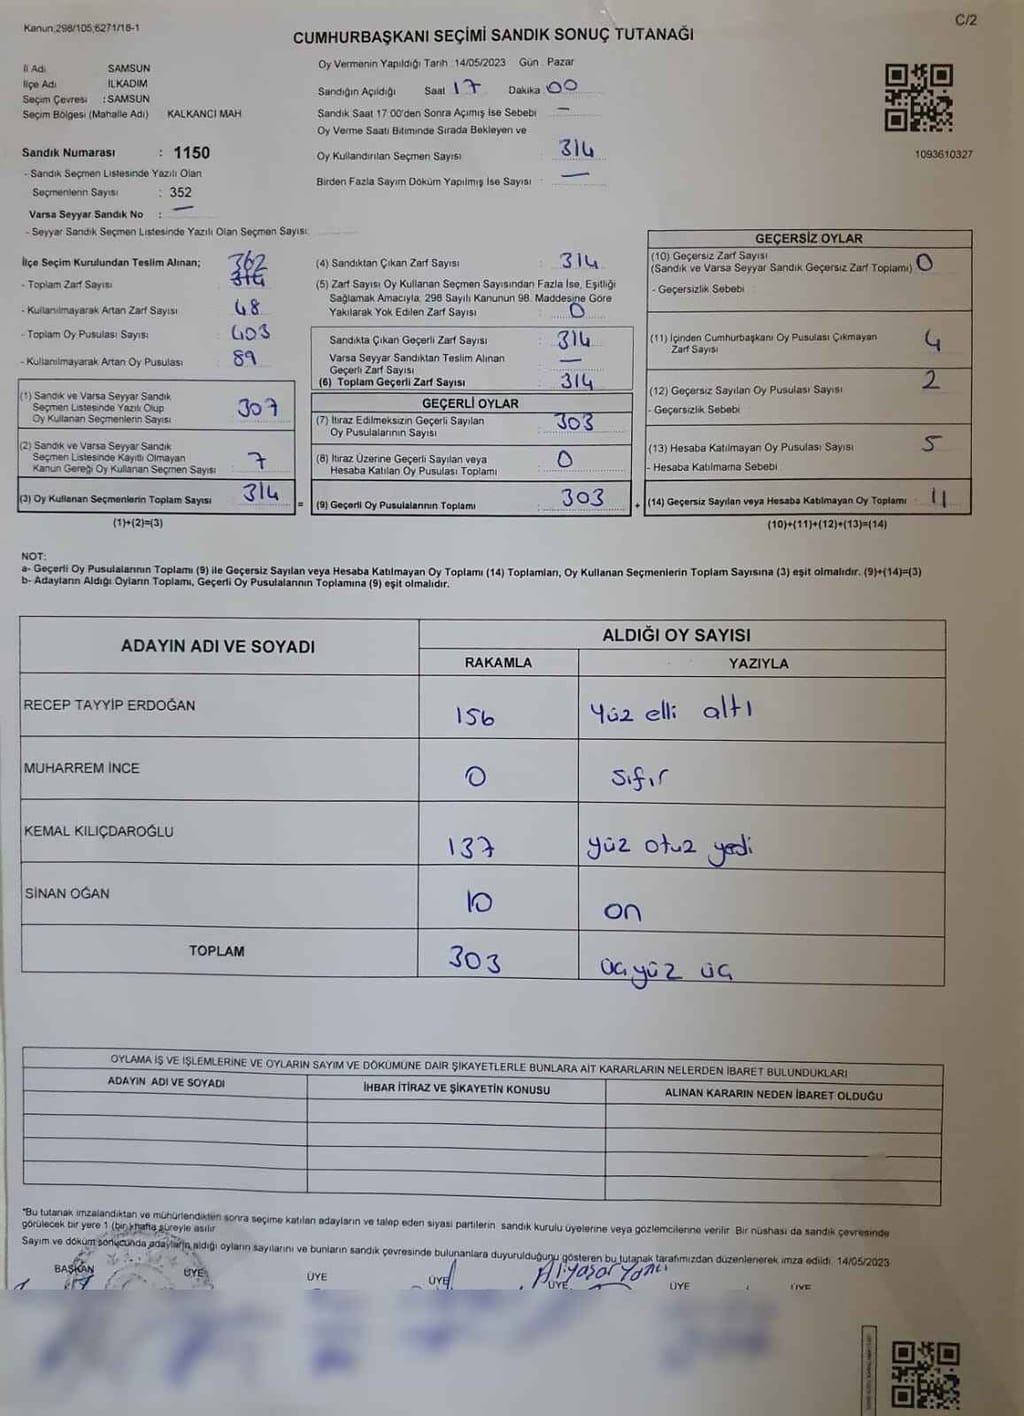 Kanun 298/105,6271/18-1
C/2
CUMHURBAŞKANI SEÇİMİ SANDIK SONUÇ TUTANAĞI
İl Adı : SAMSUN
İlçe Adı : İLKADIM
Seçim Çevresi : SAMSUN
Seçim Bölgesi (Mahalle Adı) KALKANCI MAH
Sandık Numarası : 1150
- Sandık Seçmen Listesinde Yazılı Olan
Seçmenlerin Sayısı : 352
Varsa Seyyar Sandık No : —
- Seyyar Sandık Seçmen Listesinde Yazılı Olan Seçmen Sayısı:
Oy Vermenin Yapıldığı Tarih : 14/05/2023 Gün : Pazar
Sandığın Açıldığı Saat 17 Dakika 00
Sandık Saat 17:00'den Sonra Açımış İse Sebebi —
Oy Verme Saati Bitiminde Sırada Bekleyen ve
Oy Kullandırılan Seçmen Sayısı : 314
Birden Fazla Sayım Döküm Yapılmış İse Sayısı : —
1093610327
İlçe Seçim Kurulundan Teslim Alınan; 362
- Toplam Zarf Sayısı : 314
- Kullanılmayarak Artan Zarf Sayısı : 48
- Toplam Oy Pusulası Sayısı : 403
- Kullanılmayarak Artan Oy Pusulası : 89
(1) Sandık ve Varsa Seyyar Sandık
Seçmen Listesinde Yazılı Olup
Oy Kullanan Seçmenlerin Sayısı : 307
(2) Sandık ve Varsa Seyyar Sandık
Seçmen Listesinde Kayıtlı Olmayan
Kanun Gereği Oy Kullanan Seçmen Sayısı : 7
(3) Oy Kullanan Seçmenlerin Toplam Sayısı : 314
(1)+(2)=(3)
(4) Sandıktan Çıkan Zarf Sayısı : 314
(5) Zarf Sayısı Oy Kullanan Seçmen Sayısından Fazla İse, Eşitliği
Sağlamak Amacıyla, 298 Sayılı Kanunun 98. Maddesine Göre
Yakılarak Yok Edilen Zarf Sayısı : 0
Sandıkta Çıkan Geçerli Zarf Sayısı : 314
Varsa Seyyar Sandıktan Teslim Alınan
Geçerli Zarf Sayısı : —
(6) Toplam Geçerli Zarf Sayısı : 314
GEÇERLİ OYLAR
(7) İtiraz Edilmeksizin Geçerli Sayılan
Oy Pusulalarının Sayısı : 303
(8) İtiraz Üzerine Geçerli Sayılan veya
Hesaba Katılan Oy Pusulası Toplamı : 0
= (9) Geçerli Oy Pusulalarının Toplamı : 303
GEÇERSİZ OYLAR
(10) Geçersiz Zarf Sayısı
(Sandık ve Varsa Seyyar Sandık Geçersiz Zarf Toplamı) : 0
- Geçersizlik Sebebi
(11) İçinden Cumhurbaşkanı Oy Pusulası Çıkmayan
Zarf Sayısı : 4
(12) Geçersiz Sayılan Oy Pusulası Sayısı : 2
- Geçersizlik Sebebi
(13) Hesaba Katılmayan Oy Pusulası Sayısı : 5
- Hesaba Katılmama Sebebi
+ (14) Geçersiz Sayılan veya Hesaba Katılmayan Oy Toplamı : 11
(10)+(11)+(12)+(13)=(14)
NOT:
a- Geçerli Oy Pusulalarının Toplamı (9) ile Geçersiz Sayılan veya Hesaba Katılmayan Oy Toplamı (14) Toplamları, Oy Kullanan Seçmenlerin Toplam Sayısına (3) eşit olmalıdır. (9)+(14)=(3)
b- Adayların Aldığı Oyların Toplamı, Geçerli Oy Pusulalarının Toplamına (9) eşit olmalıdır.
ADAYIN ADI VE SOYADI
ALDIĞI OY SAYISI
RAKAMLA YAZIYLA
RECEP TAYYİP ERDOĞAN 156 Yüz elli altı
MUHARREM İNCE 0 Sıfır
KEMAL KILIÇDAROĞLU 137 yüz otuz yedi
SİNAN OĞAN 10 on
TOPLAM 303 üçyüz üç
OYLAMA İŞ VE İŞLEMLERİNE VE OYLARIN SAYIM VE DÖKÜMÜNE DAİR ŞİKAYETLERLE BUNLARA AİT KARARLARIN NELERDEN İBARET BULUNDUKLARI
ADAYIN ADI VE SOYADI İHBAR İTİRAZ VE ŞİKAYETİN KONUSU ALINAN KARARIN NEDEN İBARET OLDUĞU
*Bu tutanak imzalandıktan ve mühürlendikten sonra seçime katılan adayların ve talep eden siyasi partilerin sandık kurulu üyelerine veya gözlemcilerine verilir. Bir nüshası da sandık çevresinde
görülecek bir yere 1 (bir) hafta süreyle asılır
Sayım ve döküm sonucunda adayların aldığı oyların sayılarını ve bunların sandık çevresinde bulunanlara duyurulduğunu gösteren bu tutanak tarafımızdan düzenlenerek imza edildi. 14/05/2023
BAŞKAN ÜYE ÜYE ÜYE ÜYE ÜYE ÜYE